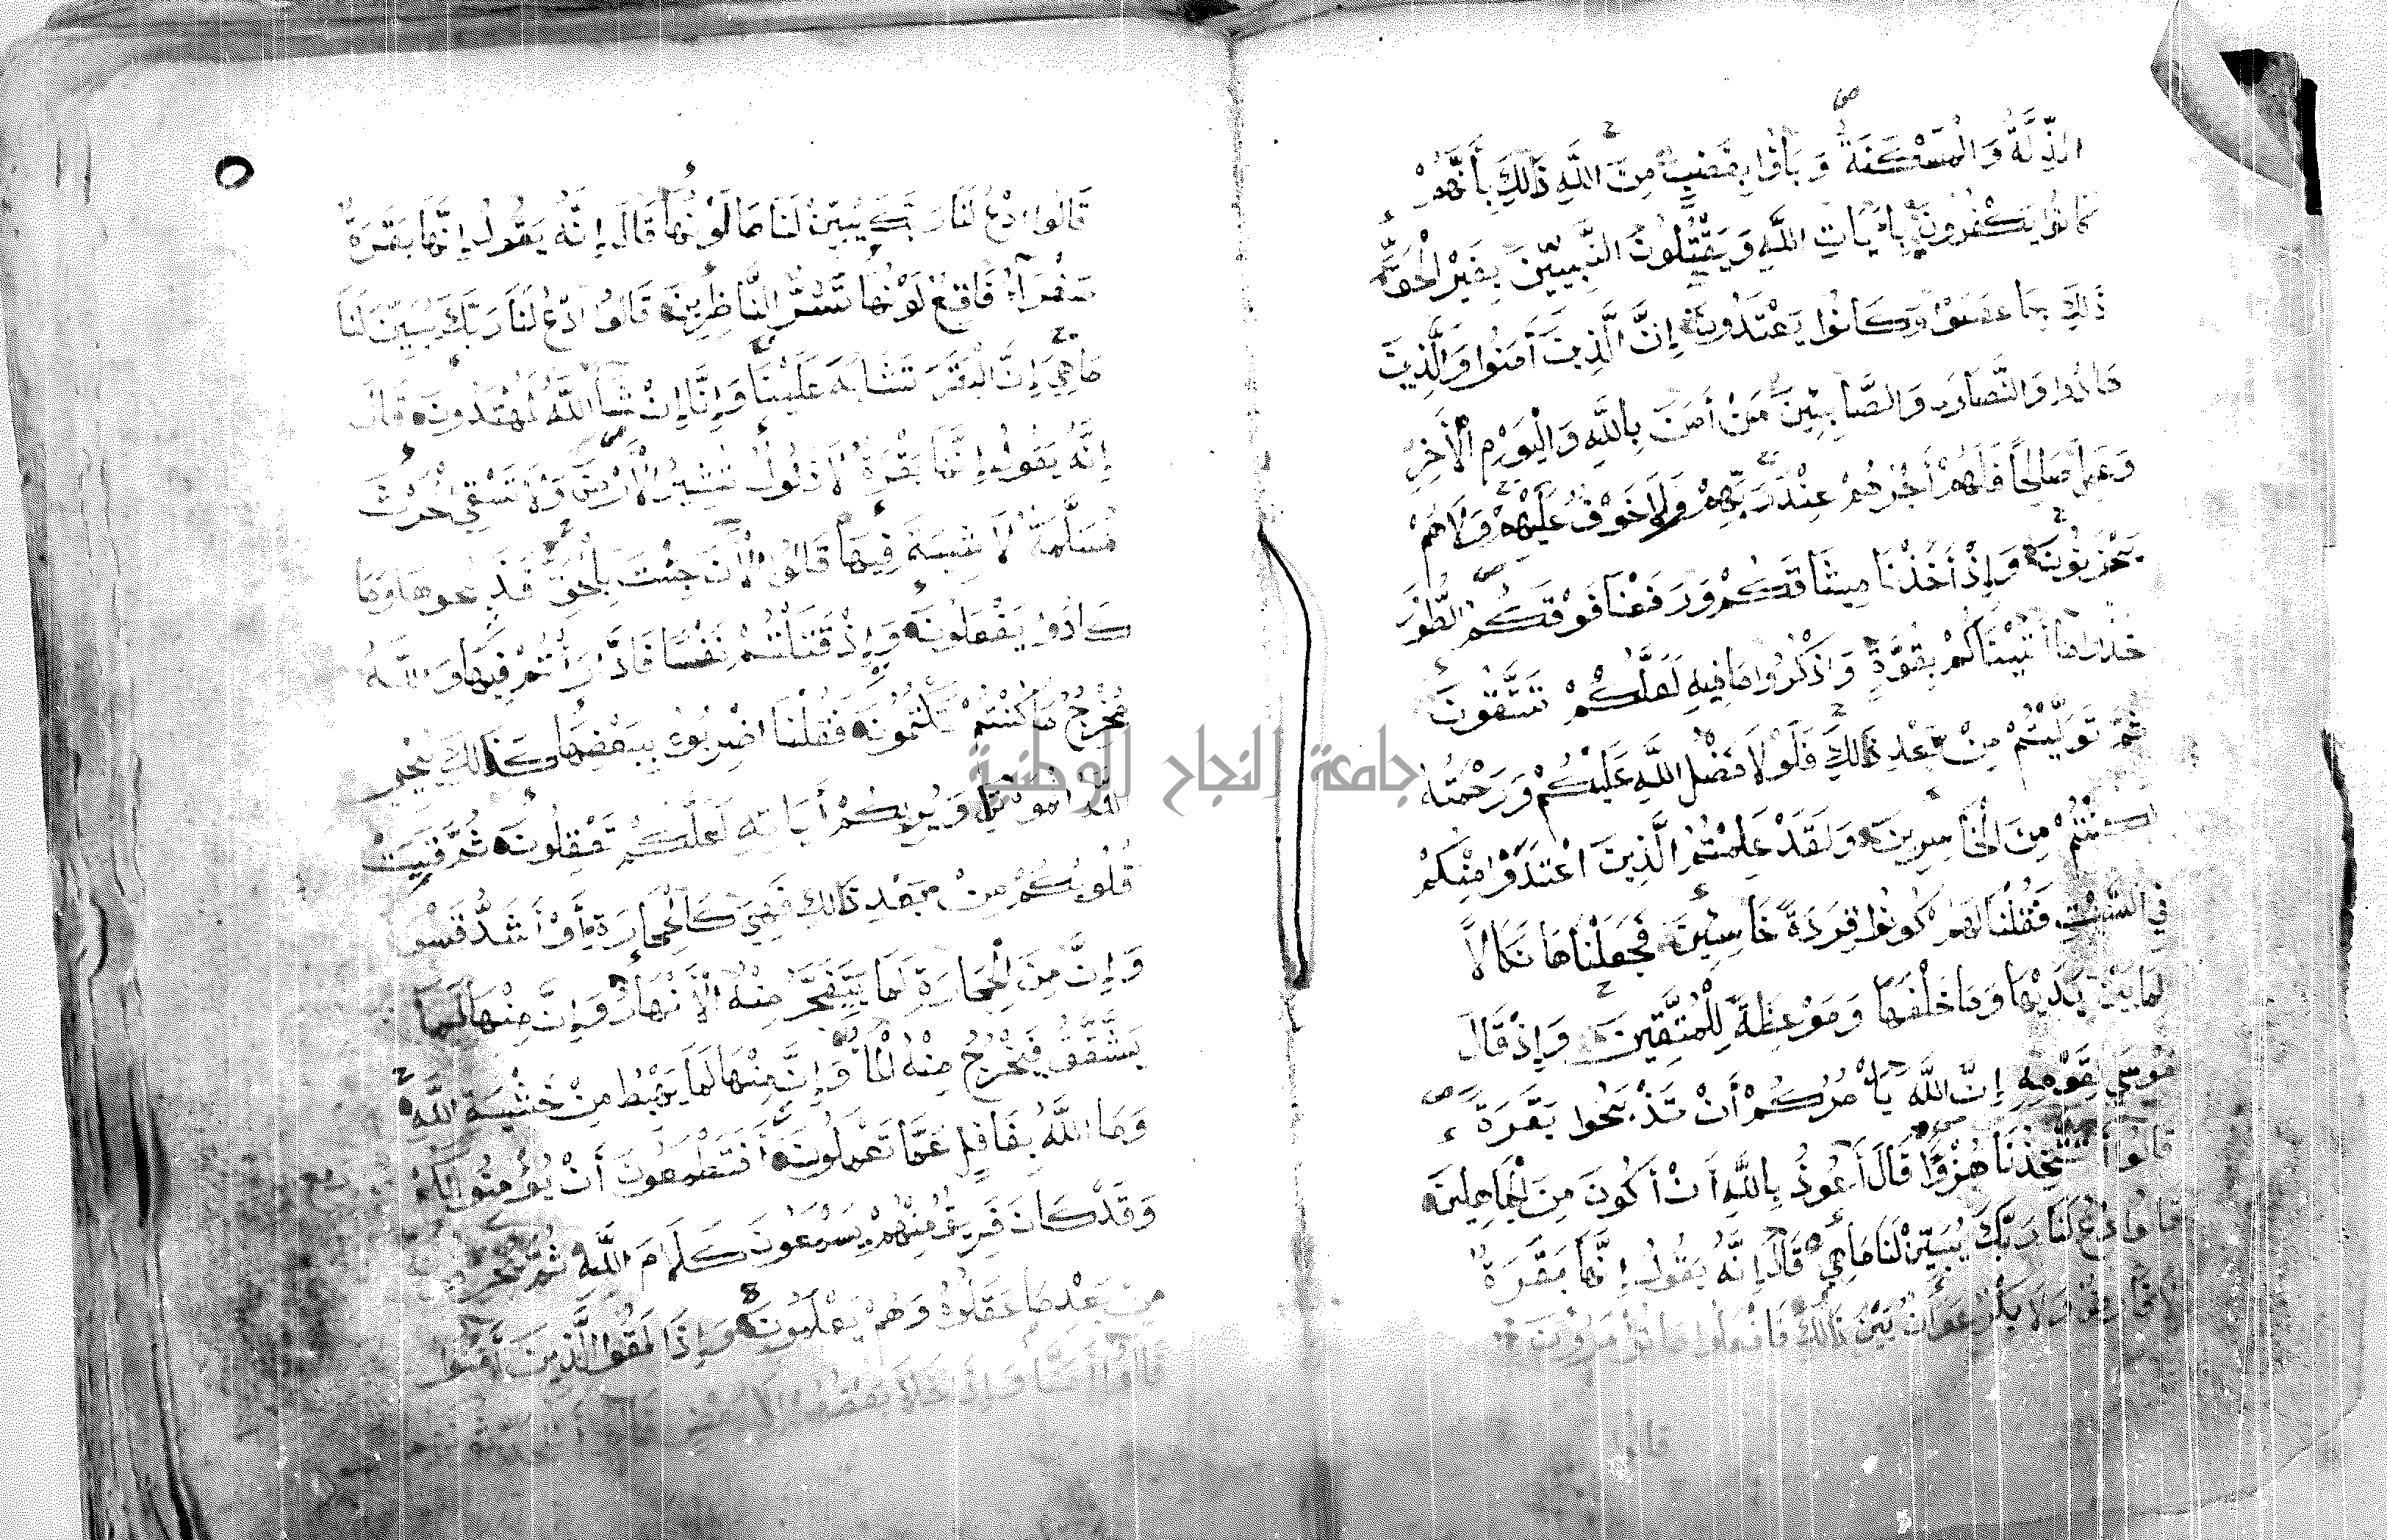 الذِّلَّةُ وَالْمَسْكَنَةُ وَبَاؤُا بِغَضَبٍ مِنَ اللَّهِ ذَالِكَ بِأَنَّهُمْ
كَانُوا يَكْفُرُونَ بِاَيَاتِ اللَّهِ وَيَقْتُلُونَ النَّبِيِّينَ بِغَيْرِ الْحَقِّ
ذَالِكَ بِمَا عَصَوْا وَكَانُوا يَعْتَدُونَ إِنَّ الَّذِينَ أَمَنُوا وَالَّذِينَ
هَادُوا وَالنَّصَارَى وَالصَّابِئِينَ مَنْ أَمَنَ بِاللَّهِ وَالْيَوْمِ الْأَخِرِ
وَعَمِلَ صَالِحًا فَلَهُمْ أَجْرُهُمْ عِنْدَ رَبِّهِمْ وَلَا خَوْفٌ عَلَيْهِمْ وَلَا هُمْ
يَحْزَنُونَ وَإِذْ أَخَذْنَا مِيثَاقَكُمْ وَرَفَعْنَا فَوْقَكُمُ الطُّورَ
خُذُوا مَا أَتَيْنَاكُمْ بِقُوَّةٍ وَاذْكُرُوا مَا فِيهِ لَعَلَّكُمْ تَتَّقُونَ
ثُمَّ تَوَلَّيْتُمْ مِنْ بَعْدِ ذَالِكَ فَلَوْلَا فَضْلُ اللَّهِ عَلَيْكُمْ وَرَحْمَتُهُ
لَكُنْتُمْ مِنَ الْخَاسِرِينَ وَلَقَدْ عَلِمْتُمُ الَّذِينَ اعْتَدَوْا مِنْكُمْ
فِي السَّبْتِ فَقُلْنَا لَهُمْ كُونُوا قِرَدَةً خَاسِئِينَ فَجَعَلْنَاهَا نَكَالًا
لِمَا بَيْنَ يَدَيْهَا وَمَا خَلْفَهَا وَمَوْعِظَةً لِلْمُتَّقِينَ وَإِذْ قَالَ
مُوسَى لِقَوْمِهِ إِنَّ اللَّهَ يَأْمُرُكُمْ أَنْ تَذْبَحُوا بَقَرَةً
قَالُوا أَتَتَّخِذُنَا هُزُوًا قَالَ أَعُوذُ بِاللَّهِ أَنْ أَكُونَ مِنَ الْجَاهِلِينَ
قَالُوا ادْعُ لَنَا رَبَّكَ يُبَيِّنْ لَنَا مَا هِيَ قَالَ إِنَّهُ يَقُولُ إِنَّهَا بَقَرَةٌ
لَا فَارِضٌ وَلَا بِكْرٌ عَوَانٌ بَيْنَ ذَالِكَ فَافْعَلُوا مَا تُؤْمَرُونَ
قَالُوا
قَالُوا ادْعُ لَنَا رَبَّكَ يُبَيِّنْ لَنَا مَا لَوْنُهَا قَالَ إِنَّهُ يَقُولُ إِنَّهَا بَقَرَةٌ
صَفْرَآءُ فَاقِعٌ لَوْنُهَا تَسُرُّ النَّاظِرِينَ قَالُوا ادْعُ لَنَا رَبَّكَ يُبَيِّنْ لَنَا
مَا هِيَ إِنَّ الْبَقَرَ تَشَابَهَ عَلَيْنَا وَإِنَّا إِنْ شَاءَ اللَّهُ لَمُهْتَدُونَ قَالَ
إِنَّهُ يَقُولُ إِنَّهَا بَقَرَةٌ لَا ذَلُولٌ تُثِيرُ الْأَرْضَ وَلَا تَسْقِي الْحَرْثَ
مُسَلَّمَةٌ لَا شِيَةَ فِيهَا قَالُوا الْأَنَ جِئْتَ بِالْحَقِّ فَذَبَحُوهَا وَمَا
كَادُوا يَفْعَلُونَ وَإِذْ قَتَلْتُمْ نَفْسًا فَادَّارَأْتُمْ فِيهَا وَاللَّهُ
مُخْرِجٌ مَا كُنْتُمْ تَكْتُمُونَ فَقُلْنَا اضْرِبُوهُ بِبَعْضِهَا كَذَالِكَ يُحْيِ
اللَّهُ الْمَوْتَى وَيُرِيكُمْ أَيَاتِهِ لَعَلَّكُمْ تَعْقِلُونَ ثُمَّ قَسَتْ
قُلُوبُكُمْ مِنْ بَعْدِ ذَالِكَ فَهِيَ كَالْحِجَارَةِ أَوْ أَشَدُّ قَسْوَةً
وَإِنَّ مِنَ الْحِجَارَةِ لَمَا يَتَفَجَّرُ مِنْهُ الْأَنْهَارُ وَإِنَّ مِنْهَا لَمَا
يَشَّقَّقُ فَيَخْرُجُ مِنْهُ الْمَاءُ وَإِنَّ مِنْهَا لَمَا يَهْبِطُ مِنْ خَشْيَةِ اللَّهِ
وَمَا اللَّهُ بِغَافِلٍ عَمَّا تَعْمَلُونَ أَفَتَطْمَعُونَ أَنْ يُؤْمِنُوا لَكُمْ
وَقَدْ كَانَ فَرِيقٌ مِنْهُمْ يَسْمَعُونَ كَلَامَ اللَّهِ ثُمَّ
مِنْ بَعْدِ مَا عَقَلُوهُ وَهُمْ يَعْلَمُونَ وَإِذَا لَقُوا الَّذِينَ أَمَنُوا
قَالُوا أَمَنَّا وَإِذَا خَلَا بَعْضُهُمْ
جامعة النجاح الوطنية